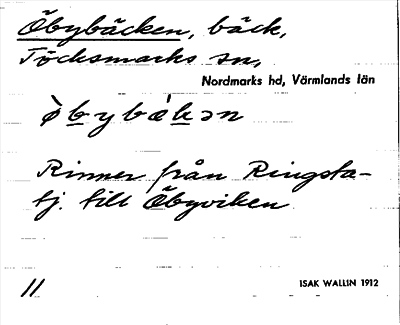 Õbybäcken, bäck,
Töcksmarks sn,
Nordmarks hd, Värmlands län
ò̀bybä́kən
Rinner från Ringsta-
tj. till Õbyviken
11
ISAK WALLIN 1912